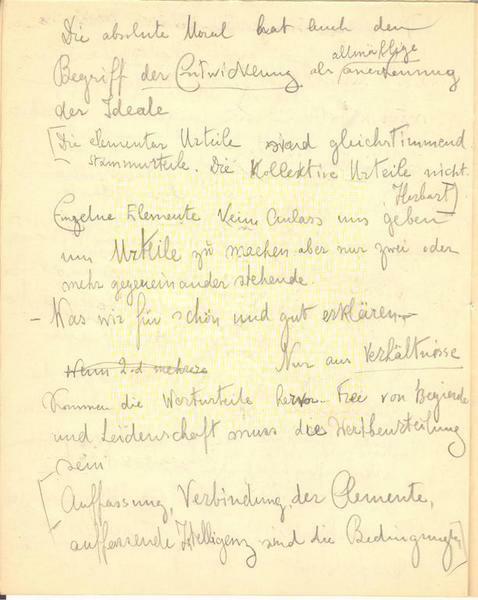 Die absolute Moral hat auch den
allmählige
Begriff der Entwicklung als Anerkennung
der Ideale
[Die elementar Urteile sind gleichstimmend
Stammurteile. Die Kollektive Urteile nicht.
Herbart]
Einzelne Elemente keine Anlass uns geben
um Urteile zu machen aber nur zwei oder
mehr gegeneinander stehende.
– Was wir für schön und gut erklären –
Wenn 2 od mehrere Nur aus Verhältnisse
Kommen die Werturteile hervor. Free von Begierde
und Leidenschaft muss die Wertbeurteilung
sein
[Auffassung, Verbindung der Elemente,
auffassende Intelligenz sind die Bedingungen]